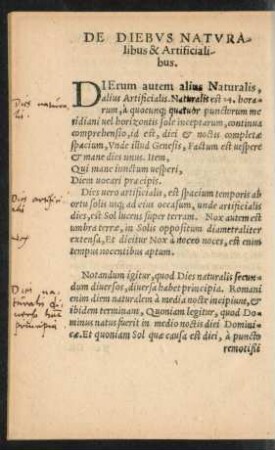 DE DIEBVS NATVRA
libus & Artificiali-
bus.
DIErum autem alius Naturalis,
alius Artificialis. Naturalis est 24. hora-
rum, à quocunq; quatuor punctorum me
ridiani uel horizontis sole inceptarum, continua
comprehensio, id est, diei & noctis completæ
spacium, Vnde illud Genesis, Factum est uespere
& mane dies unus. Item,
Qui mane iunctum uesperi,
Diem uocari præcipis.
Dies uero artificialis, est spacium temporis ab
ortu solis usq; ad eius occasum, unde artificialis
dies, rit Sol lucens super terram. Nox autem est
umbra terræ, in Solis oppositum diametraliter
extensa, Et dicitur Nox à noceo noces, est enim
tempus nocentibus aptum.
Notandum igitur, quod Dies naturalis secun-
dum diuersos, diuersa habet principia. Romani
enim diem naturalem à media nocte incipium, &
ibidem terminant, Quoniam legitur, quod Do-
minus natus fuerit in medio noctis diei Domini-
cæ. Et quoniam Sol quæ causa est diei, à puncto
remotissi
Dies natura-
lis
Dies artifi-